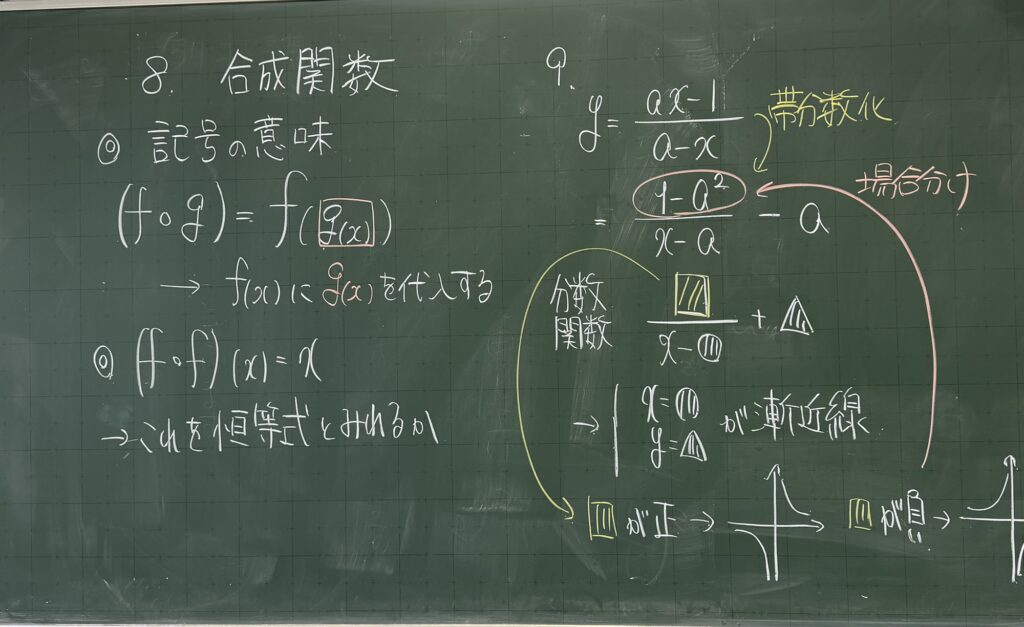 8. 合成関数
◎ 記号の意味
(f∘g) = f(g(x))
→ f(x)にg(x)を代入する
◎ (f∘f)(x) = x
→ これを恒等式とみれるか
9.
y = (ax-1)/(a-x)
帯分数化
= (1-a²)/(x-a) - a
場合分け
分数
関数
□/(x-○) + △
→ x=○
y=△
が漸近線
□が正 →
□が負 →